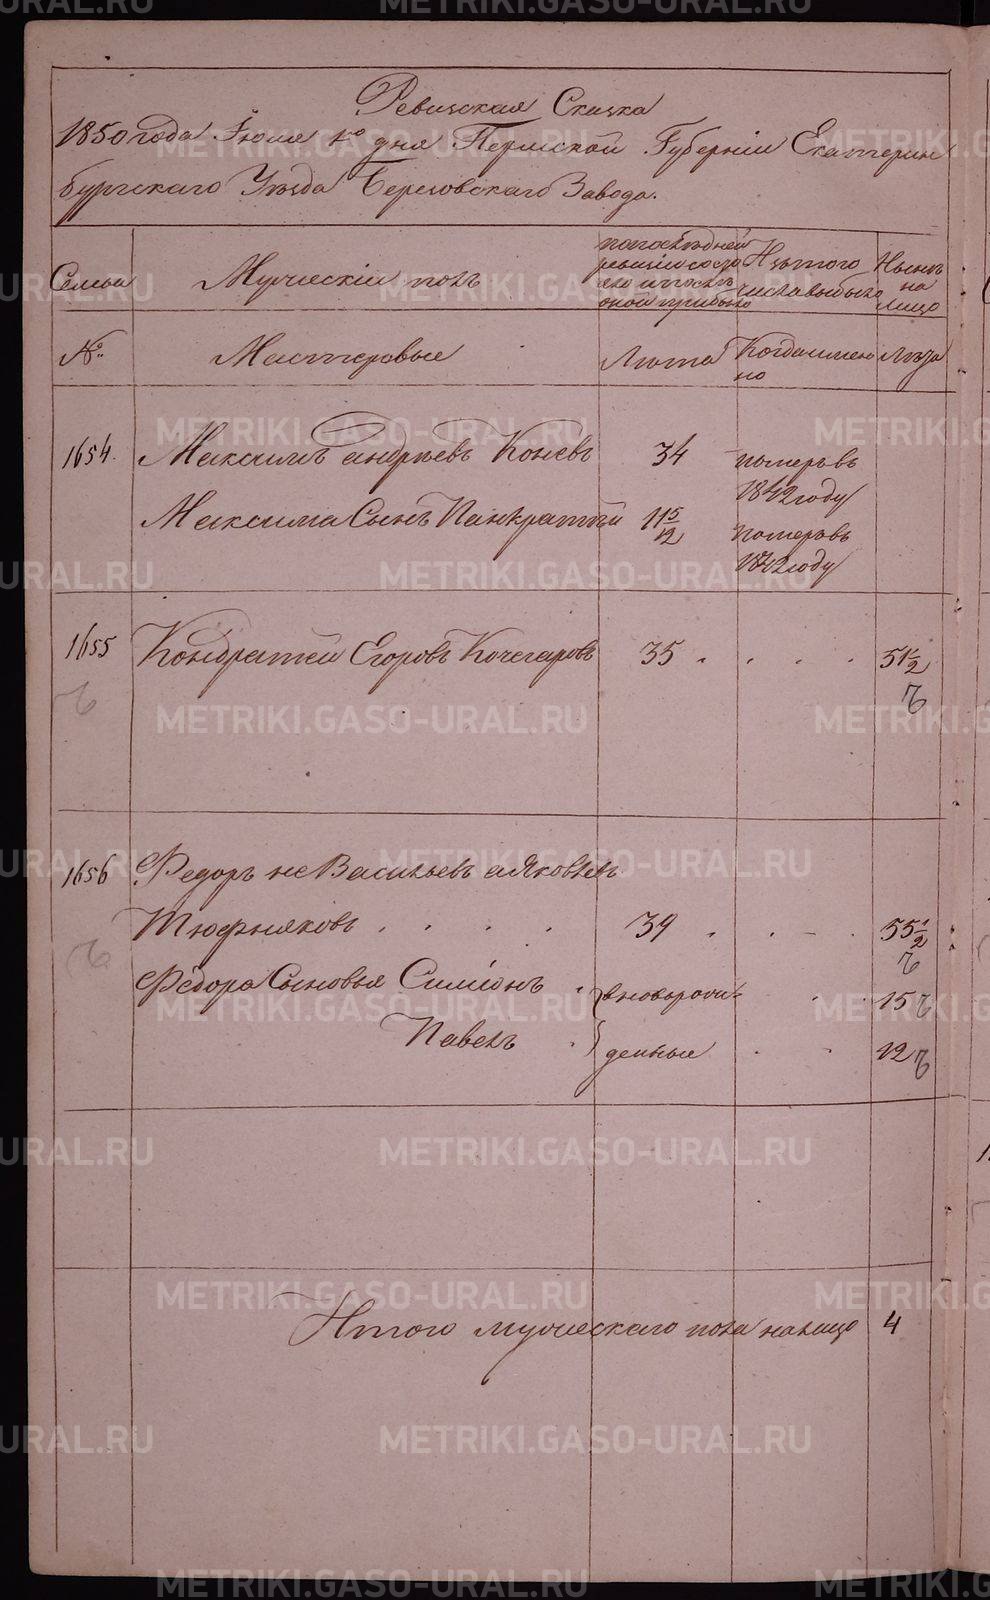 Ревизская Сказка
1850 года Июля 1го дня Пермской Губерніи Екатерин
бургскаго Уѣзда Березовскаго Завода.
Семьи
Мужескій полъ
по послѣдней
ревизіи состо
яло и послѣ
оной прибыло
Изъ того
числа выбыло
Нынѣ
на
лицо
№
Мастеровые
Лѣта
Когда имен
но
Лѣта
1654.
Максимъ Андреевъ Коневъ
34
померъ въ
1842 году
Максима Сынъ Панкратій
11 5/12
померъ въ
1842 году
1655
Кондратей Егоровъ Кочегаровъ
35
51 1/2
1656
Федоръ не Васильевъ а Яковлевъ
Тюфняковъ
39
55 1/2
Федора Сыновья Симіонъ
вновьрож
15
Павелъ
денные
12
Итого мужескаго пола налицо
4
METRIKI.GASO-URAL.RU